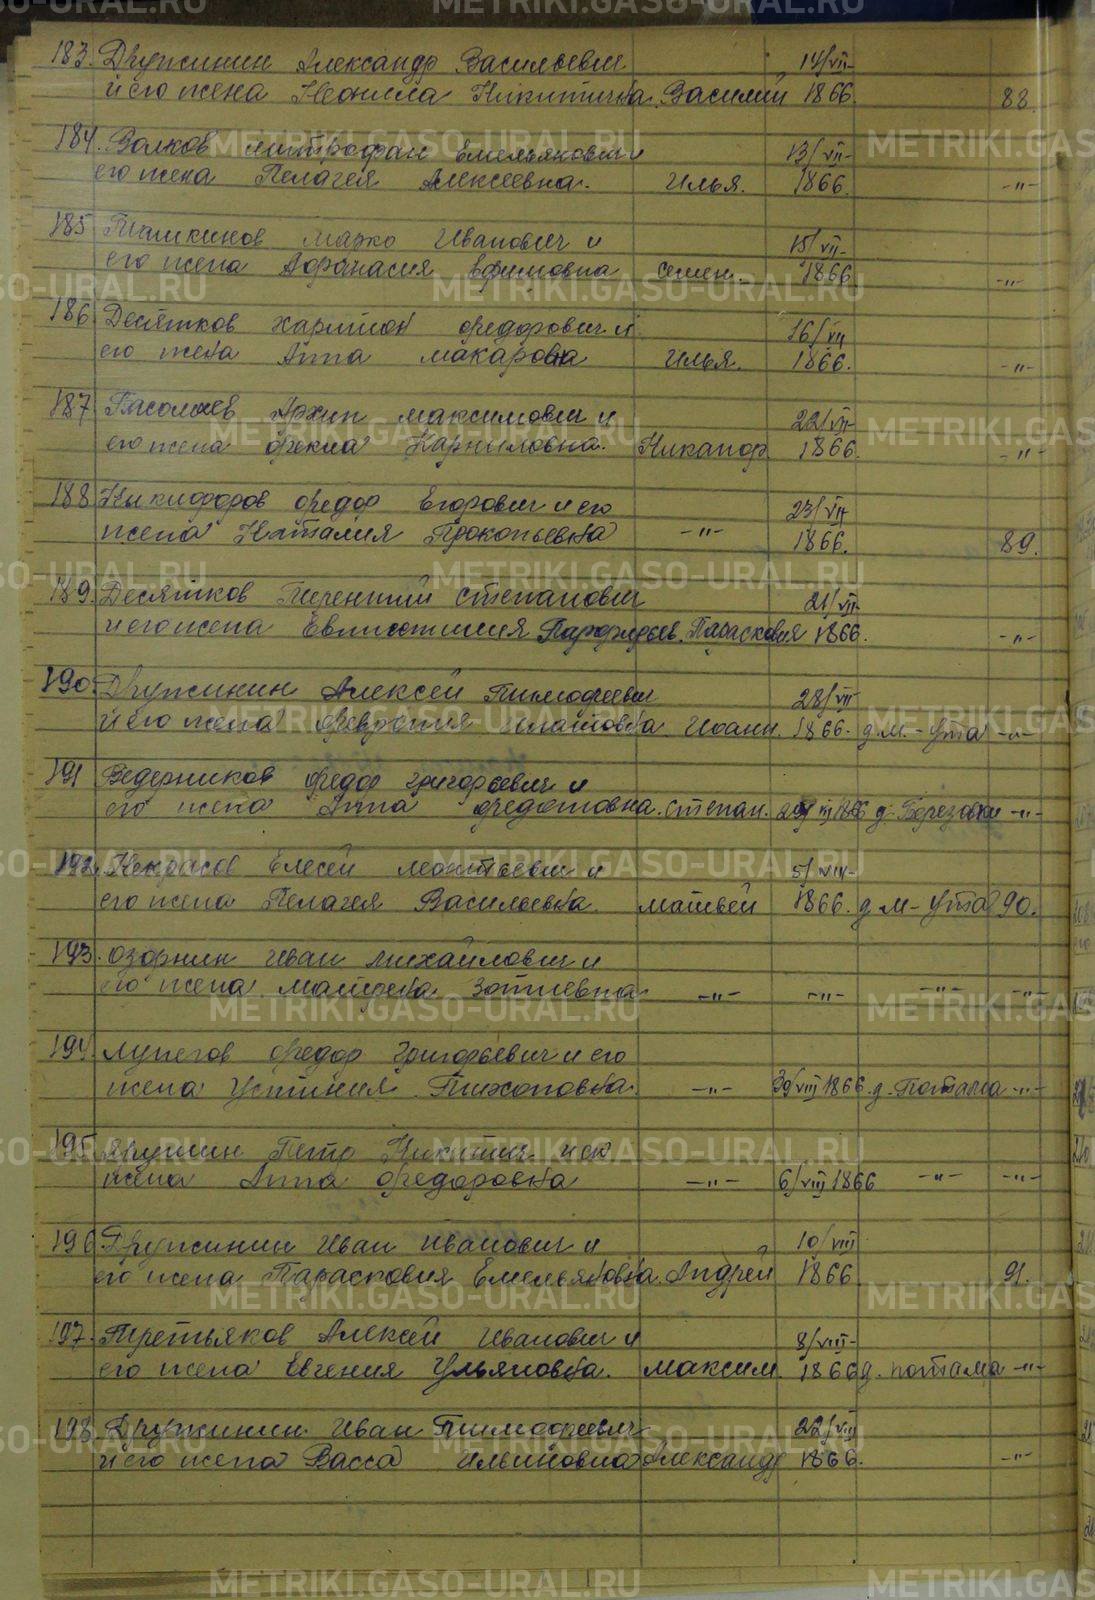 183. Дружинин Александр Васильевич 14/VII-
и его жена Неонила Никитична. Василий 1866. 88
184. Волков Митрофан Емельянович и 13/VII-
его жена Пелагея Алексеевна. Илья. 1866. -"-
185 Ташкинов Марко Иванович и 15/VII-
его жена Афанасия Ефимовна Семен. 1866 -"-
186 Десятков Харитон Федорович и 16/VII
его жена Анна Макаровна Илья. 1866. -"-
187 Архип Максимович и 22/VII-
его жена Фекла Карниловна. Никанор 1866. -"-
188 Никифоров Федор Егорович и его 23/VII
жена Наталия Прокопьевна -"- 1866. 89.
189. Десятков Терентий Степанович 21/VII-
и его жена Парфирьев. Парасковия 1866. -"-
190. Дружинин Алексей Тимофеевич 28/VII
и его жена Феврония Игнатовна Иоанн. 1866. д.М.-Ута -"-
191 Ведерников Федор Григорьевич и
его жена Анна Федотовна. Степан. 29/VII 1866 д. Березовки -"-
192. Некрасов Елесей Леонтьевич и 5/VIII-
его жена Пелагея Васильевна. Матвей 1866. д М-Ута 90.
193. Озорнин Иван Михайлович и
его жена Матрена Зотиевна -"- -"- -"- -"-
194 Лупегов Федор Григорьевич и его
жена Устиния Тихоновна. -"- 30/VIII 1866. д. Потама -"-
195 Ярушин Петр Никитич и его
жена Анна Федоровна -"- 6/VIII 1866 -"- -"-
196 Дружинин Иван Иванович и 10/VIII
его жена Парасковия Емельяновна. Андрей 1866 91.
197. Третьяков Алексей Иванович и 8/VIII-
его жена Евгения Ульяновна. Максим. 1866 д. Потама -"-
198. Дружинин Иван Тимофеевич 22/VIII
и его жена Васса Ильиновна Александр 1866. -"-
METRIKI.GASO-URAL.RU